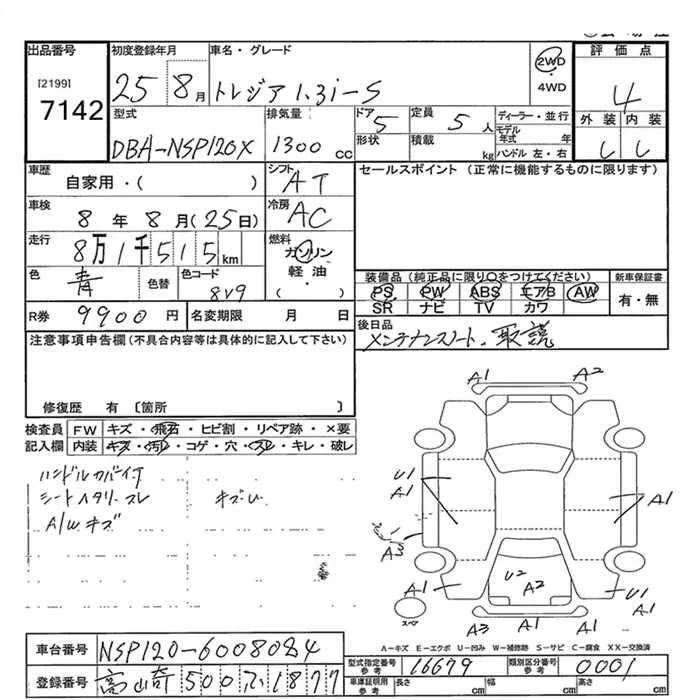 出品番号 初度登録年月 車名・グレード 評価点
[2199] 7142
25 8月 トレジア 1.3i-S 2WD・4WD
4
型式 排気量 ドア 定員 ディーラー・並行
DBA-NSP120X 1300cc 5 5人
形状 積載 kg モデル年式 年
ハンドル 左・右
外装 内装
車歴 自家用・( ) シフト AT
セールスポイント (正常に機能するものに限ります)
車検 8年8月(25日) 冷房 AC
走行 8万1千515km 燃料 ガソリン・軽油・( )
色 青 色替 色コード 8V9
装備品(純正品に限り○をつけてください) 新車保証書
PS PW ABS エアB AW
SR ナビ TV カワ
有・無
R券 9900円 名変期限 月 日
後日品
メンテナンスノート、取説
注意事項申告欄(不具合内容等は具体的に記入して下さい)
修復歴 有〔箇所 〕
検査員 FW キズ・飛石・ヒビ割・リペア跡・×要
記入欄 内装 キズ・汚レ・コゲ・穴・スレ・キレ・破レ
シートヘタリ・スレ
A/Wキズ
A1 A2
U1
A1
A1
A3
A1 U2 A2 U1
A1
A3 A1 A1
スペア
A-キズ E-エクボ U-凹み W-補修跡 S-サビ C-腐食 XX-交換済
車台番号 NSP120-6008084
型式指定番号 参考 16679 類別区分番号 参考 0001
登録番号
車庫証明用 参考 長さ cm 幅 cm 高さ cm